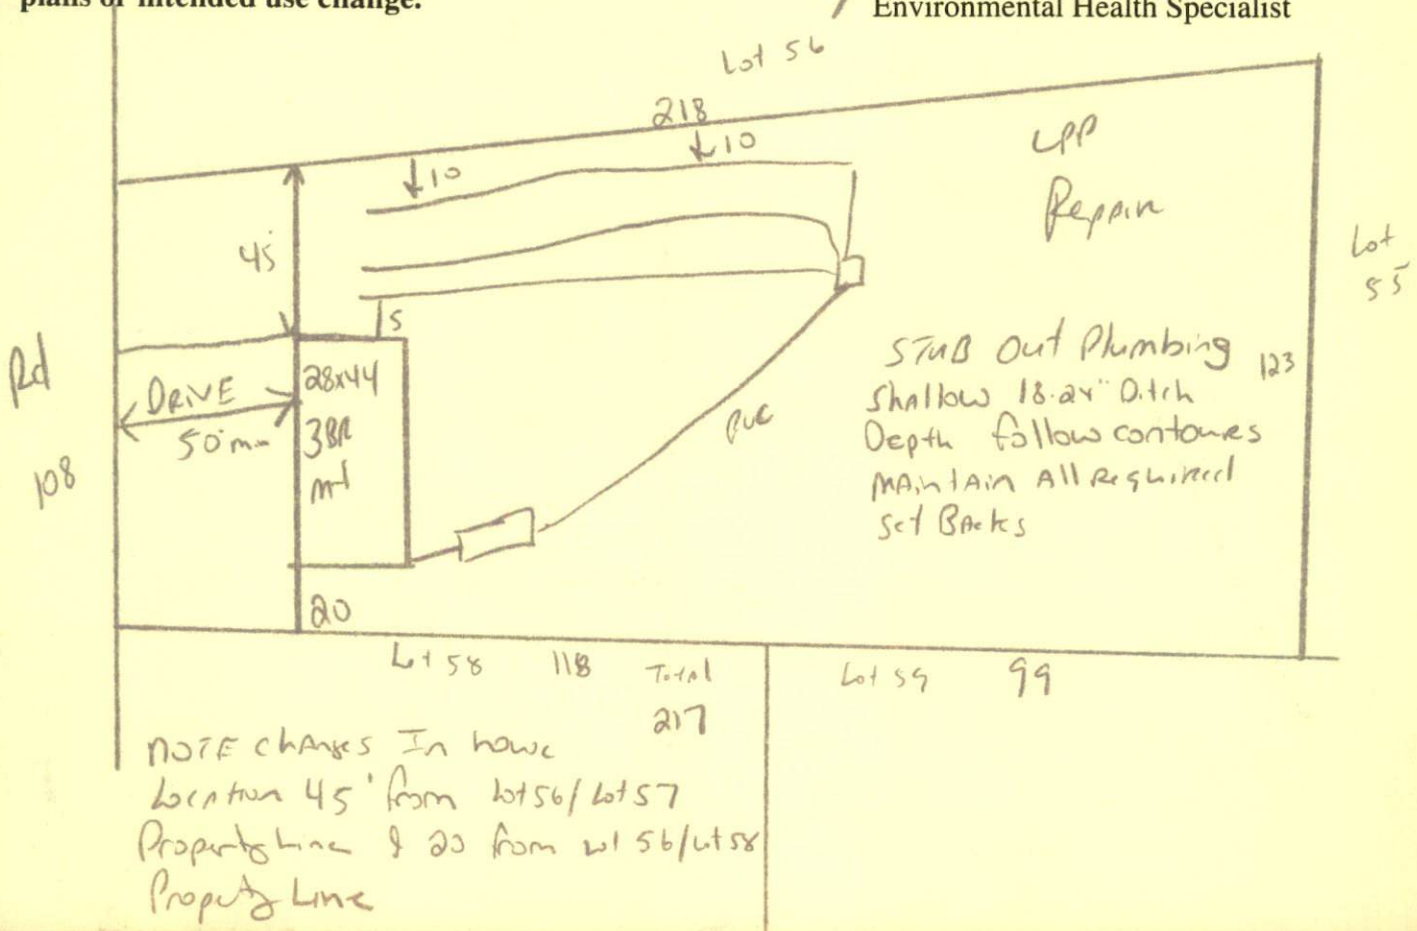 plans or intended use change.
Environmental Health Specialist
Lot 56
218
10
10
LPP
Repair
45
Lot
55
5
Rd
DRIVE
28x44
STUB Out Plumbing
123
50 min
3BR
Shallow 18-24" Ditch
PVC
Depth follow contoures
108
MAintAin All Required
Set BAcks
20
Lot 58 118 Total
217
Lot 59 99
NOTE chAnges In house
Location 45' from Lot 56/Lot 57
Property Line & 20 from Lot 56/Lot 58
Property Line